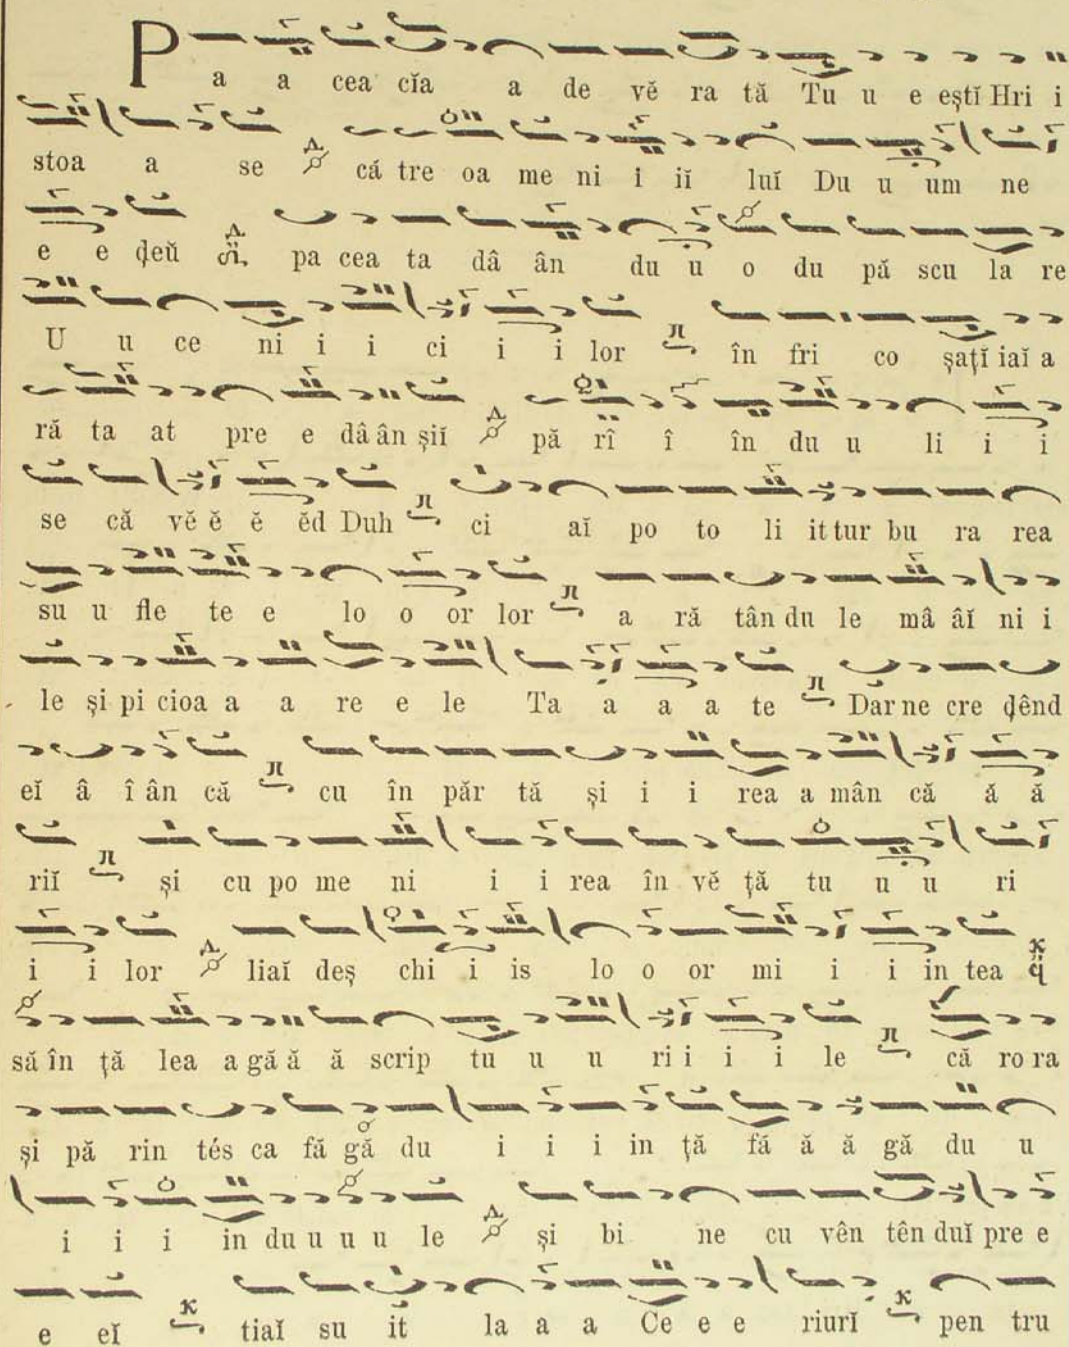 Pa a cea cĭa a de vĕ ra tă Tu u e eștĭ Hri i
stoa a se cá tre oa me ni i iĭ luĭ Du u um ne
e e ḑeŭ pa cea ta dâ ân du u o du pă scu la re
U u ce ni i i ci i i lor în fri co șațĭ iaĭ a
ră ta at pre e dâ ân șiĭ pă rî î în du u li i i
se că vĕ ĕ ĕ ĕd Duh ci aĭ po to li it tur bu ra rea
su u fle te e lo o or lor a ră tân du le mâ âĭ ni i
le și pi cioa a a re e le Ta a a a te Dar ne cre ḑênd
eĭ â î ân că cu în păr tă și i i rea a mân că ă ă
riĭ și cu po me ni i i rea în vĕ ță tu u u ri
i i lor liaĭ deș chi i is lo o or mi i i in tea
să în ță lea a gă ă ă scrip tu u u ri i i i le că ro ra
și pă rin tés ca fă gă du i i i in ță fá ă ă gă du u
i i i in du u u u le și bi ne cu vên tên duĭ pre e
e eĭ tiaĭ su it la a a Ce e e riurĭ pen tru